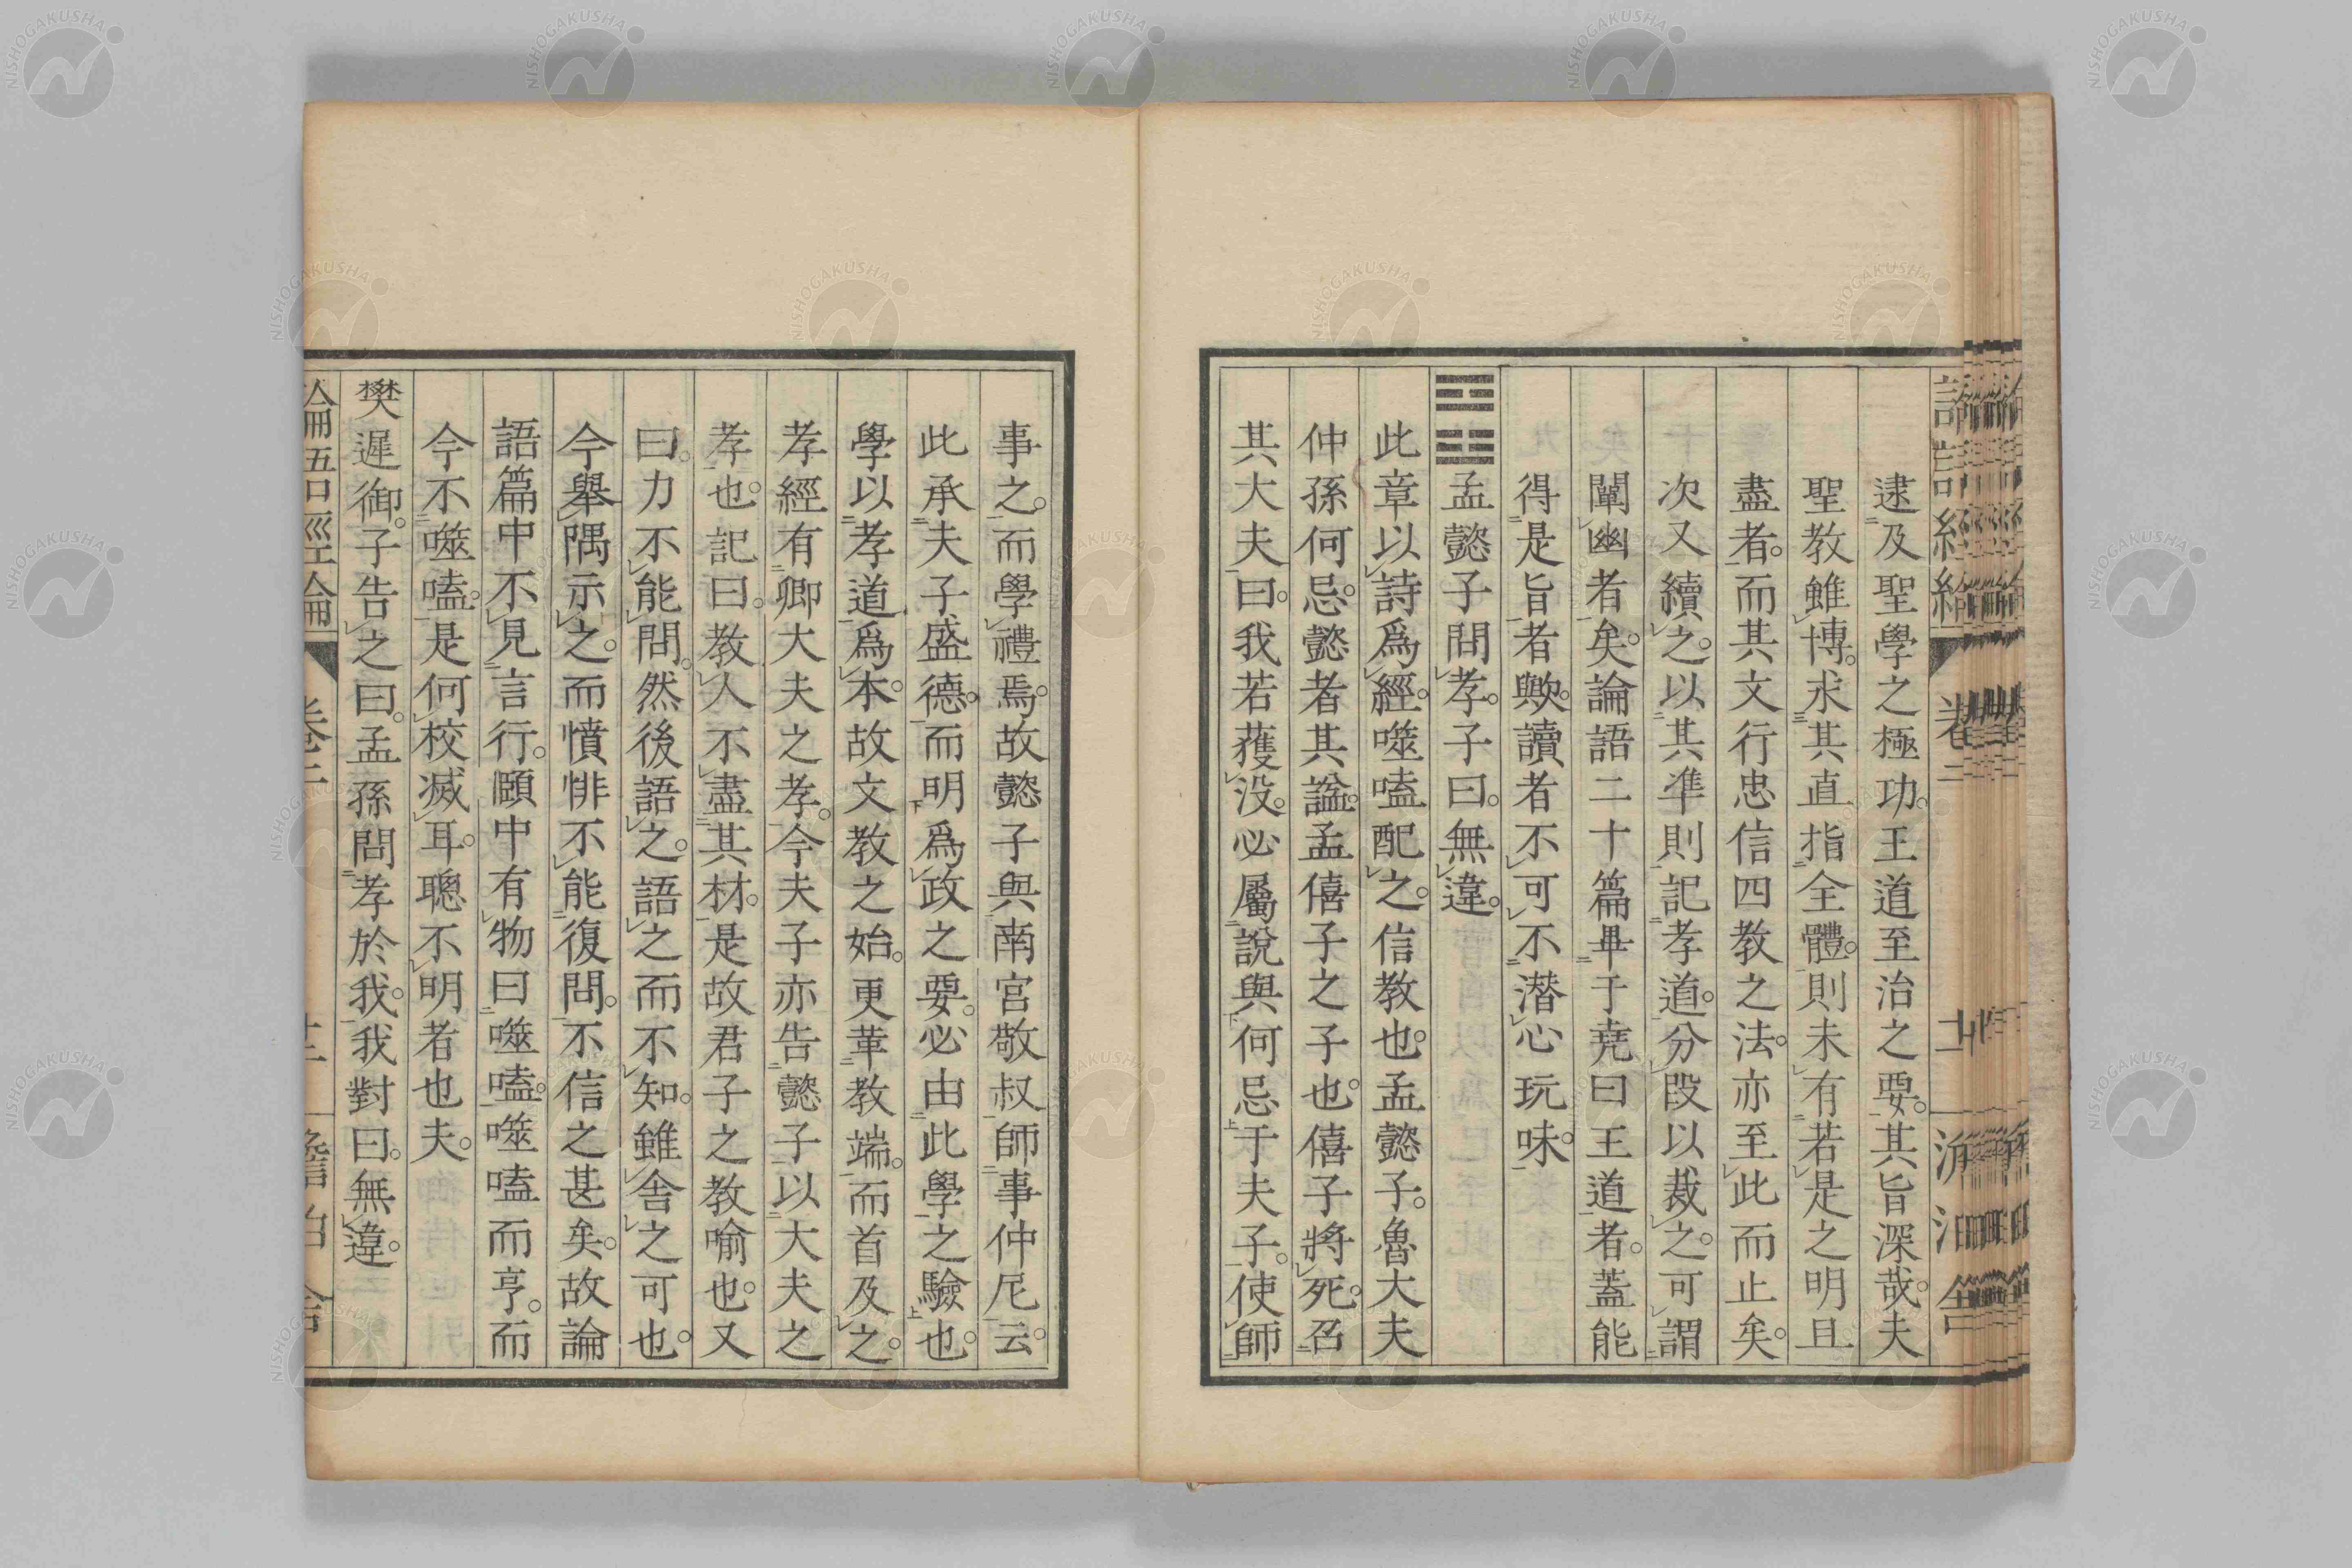 逮及聖學之極功。王道至治之要。其旨深哉。夫
聖教雖博。求其直指全體。則未有若是之明且
盡者。而其文行忠信四教之法。亦至此而止矣。
次又續之。以其準則記孝道。分段以裁之。可謂
闡幽者矣。論語二十篇畢于堯曰王道者。蓋能
得是旨者歟。讀者不可不潛心玩味。
䷔孟懿子問孝。子曰。無違。
此章以詩爲經。噬嗑配之。信教也。孟懿子。魯大夫
仲孫何忌。懿者其諡。孟僖子之子也。僖子將死。召
其大夫曰。我若獲沒。必屬說與何忌于夫子。使師
事之。而學禮焉。故懿子與南宮敬叔師事仲尼云。
此承夫子盛德。而明爲政之要。必由此學之驗也。
學以孝道爲本。故文教之始。更葦教端。而首及之。
孝經有卿大夫之孝。今夫子亦告懿子以大夫之
孝也。記曰。教人不盡其材。是故君子之教喻也。又
曰。力不能問。然後語之。語之而不知。雖舍之可也。
今舉隅示之。而憤悱不能復問。不信之甚矣。故論
語篇中不見言行。頤中有物曰噬嗑。噬嗑而亨。而
今不噬嗑。是何校滅耳。聰不明者也夫。
樊遲御。子告之曰。孟孫問孝於我。我對曰。無違。
論語經論 卷二